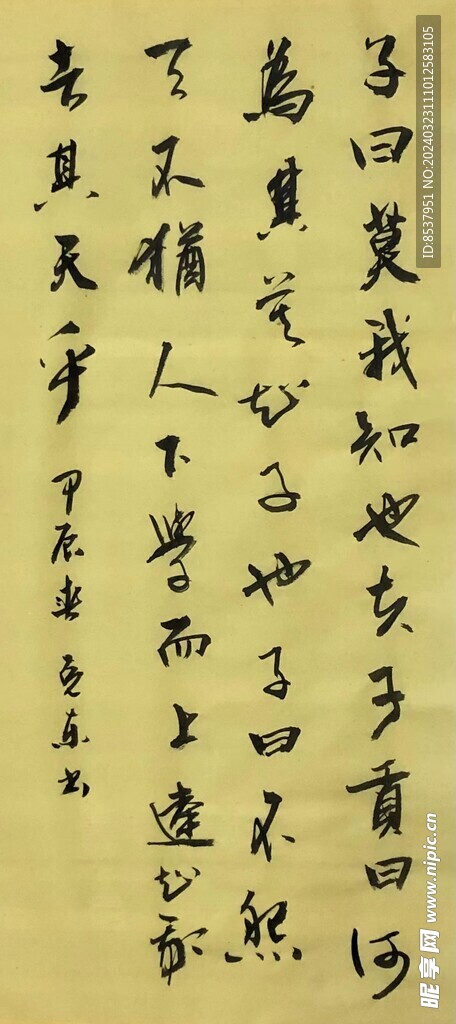 子曰莫我知也夫子貢曰何
為其莫知子也子曰不怨
天不猶人下學而上達知我
者其天乎 甲辰春 东书
ID:8537951 NO:20240323111012583105
昵享网 www.nipic.cn